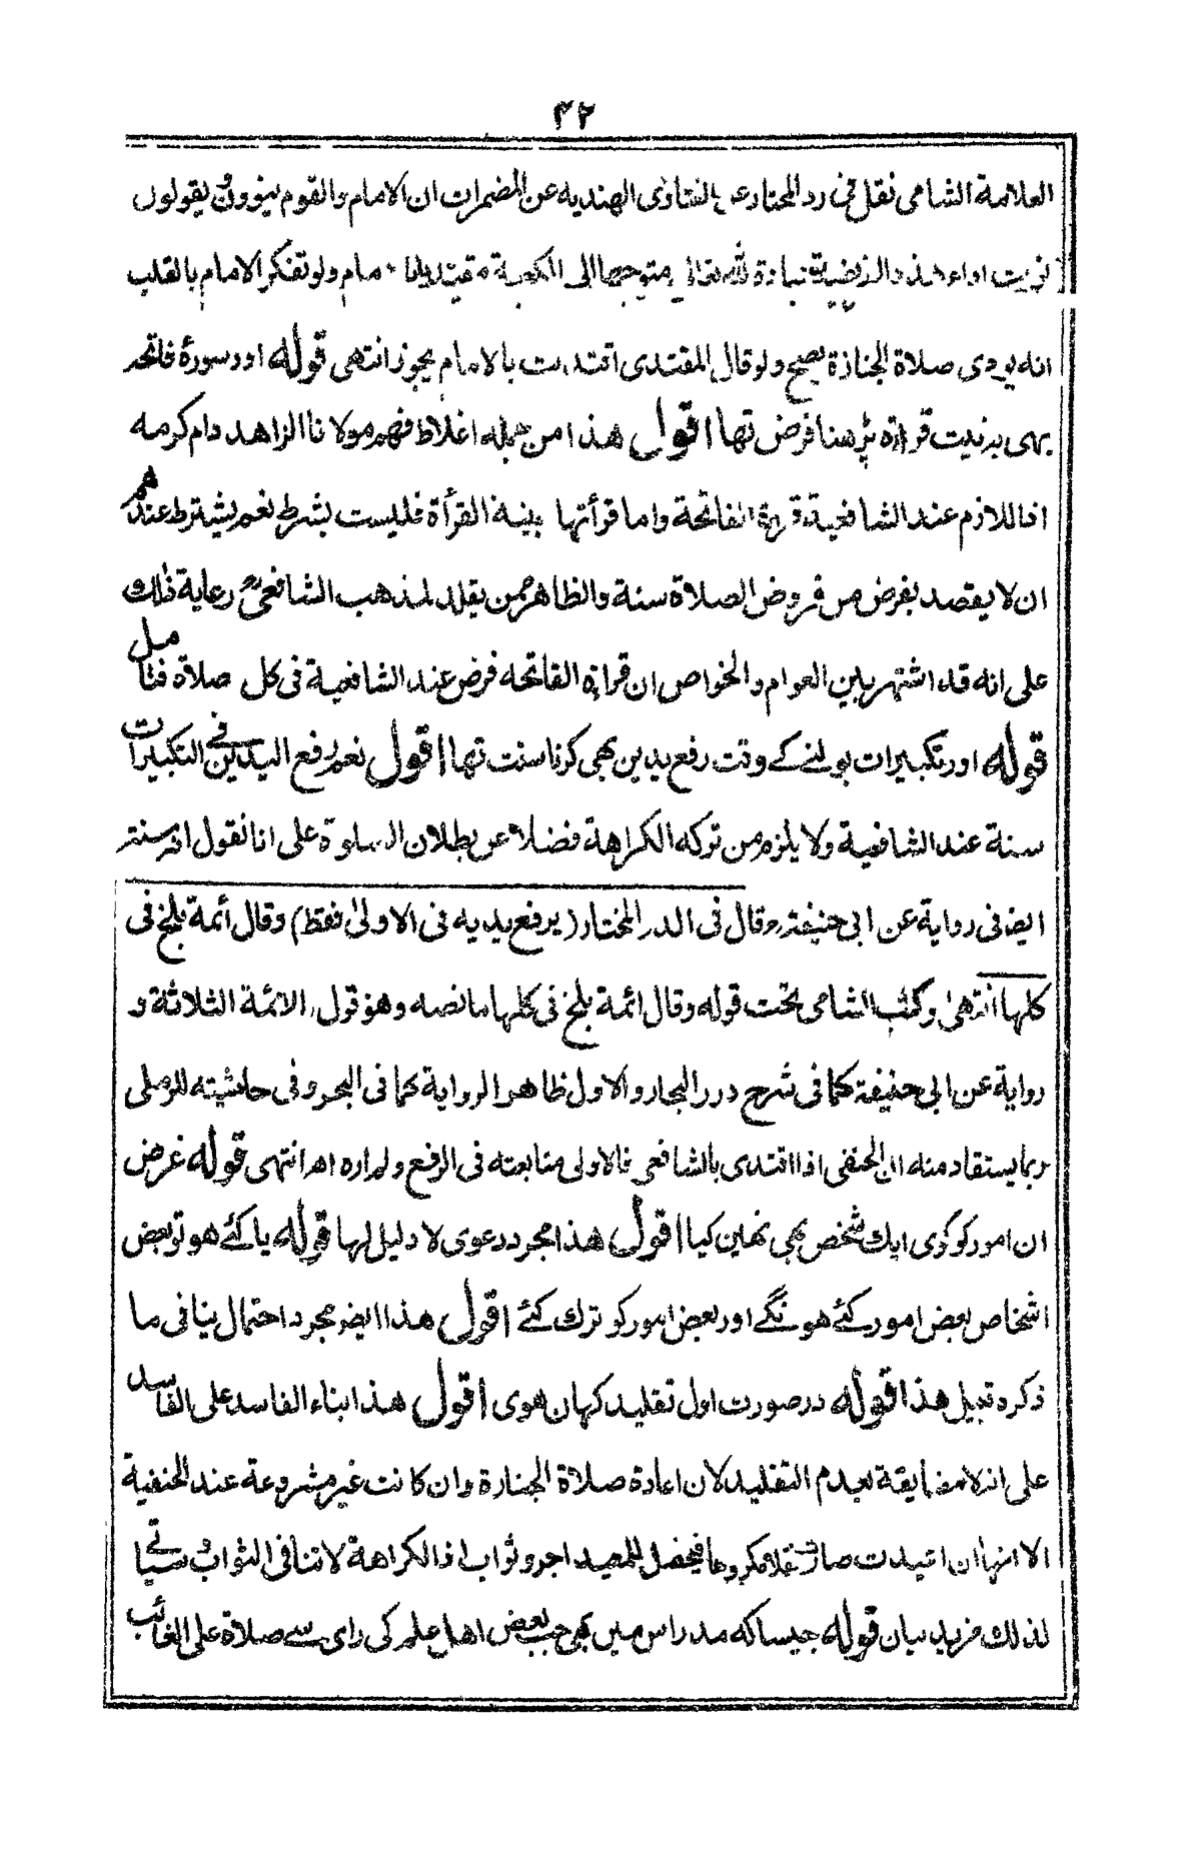 ۴۲
العلامة الشامي نقل في رد المحتار عن الفتاوى الهنديه عن المضمرات ان الامام والقوم ينوون يقولون
نويت اداء هذه الفريضة عبادة لله تعالى متوجها الى الكعبة مقتديا بالامام ولو تفكر الامام بالقلب
انه يودى صلاة الجنازة يصح ولو قال المقتدى اقتديت بالامام يجوز انتهى قوله اور سورۀ فاتحہ
بہی بہ نیت قراءة پڑھنا فرض تھا اقول هذا من جمله اغلاط فهم مولانا الزاهد دام كرمه
اذ اللازم عند الشافعية قراءة الفاتحة واما قرأتها بنية القرأة فليست بشرط نعم يشترط عندهم
ان لا يقصد بفرض من فروض الصلاة سنة والظاهر ممن يقلد لمذهب الشافعي رعاية ذلك
على انه قد اشتهر بين العوام والخواص ان قراءة الفاتحه فرض عند الشافعية فى كل صلاة فتامل
قوله اور تکبیرات بولنے کے وقت رفع یدین بھی کرنا سنت تھا اقول نعم رفع اليدين في التكبيرات
سنة عند الشافعية ولا يلزم من تركه الكراهة فضلا عن بطلان الصلوة على انا نقول انه سنة
ايضا فى رواية عن ابى حنيفة قال فى الدر المختار (يرفع يديه فى الاولى فقط) وقال أئمة بلخ فى
كلها انتهى وكتب الشامى تحت قوله وقال ائمة بلخ فى كلها ما نصه وهو قول الائمة الثلاثة و
رواية عن ابى حنيفة كما فى شرح درر البحار والاول ظاهر الرواية كما فى البحر وفى حاشيته للرملى
ربما يستفاد منه ان الحنفى اذا اقتدى بالشافعى فالاولى متابعته فى الرفع ولم اره اهـ انتهى قوله غرض
ان امور کو کوئی ایک شخص بھی نہین کیا اقول هذا مجرد دعوى لا دليل لها قوله یا کئے ہو تو بعض
اشخاص بعض امور کئے ہونگے اور بعض امور کو ترک کئے اقول هذا ايضا مجرد احتمال ينافى ما
ذكره قبيل هذا قوله در صورت اول تقلید کہان ہوی اقول هذا ابناء الفاسد على الفاسد
على انه لا مضايقة بعدم التقليد لان اعادة صلاة الجنازة وان كانت غير مشروعة عند الحنفية
الا انها ان اعيدت صارت مكروها فيحصل للمعيد اجر وثواب اذ الكراهة لا تنافى الثواب سياتى
لذلك مزيد بيان قوله جیسا کہ مدراس میں بھی جب بعض اهل علم کی رای سے صلاة على الغائب